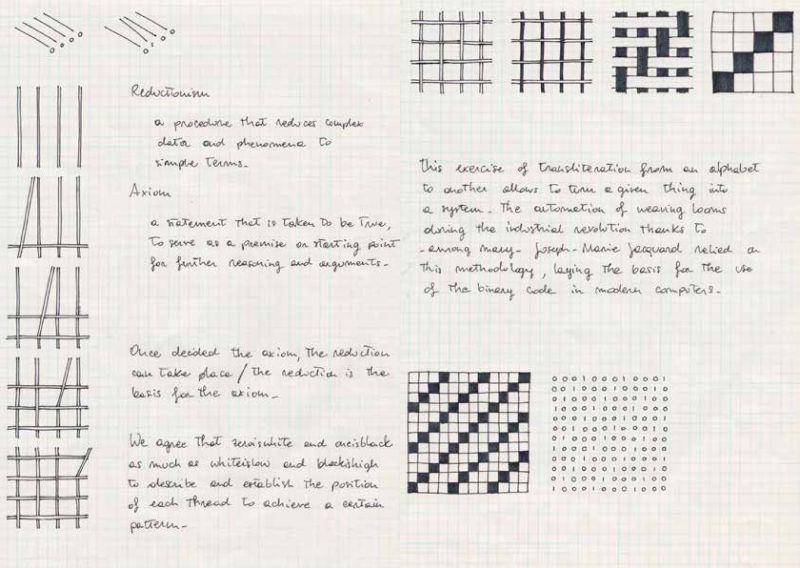 Reductionism
a procedure that reduces complex
data and phenomena to
simple terms.
Axiom
a statement that is taken to be true,
to serve as a premise or starting point
for further reasoning and arguments.
Once decided the axiom, the reduction
can take place / the reduction is the
basis for the axiom.
We agree that zeroiswhite and oneisblack
as much as whiteislow and blackishigh
to describe and establish the position
of each thread to achieve a certain
pattern.
This exercise of transliteration from an alphabet
to another allows to turn a given thing into
a system. The automation of weaving looms
during the industrial revolution thanks to
- among many - Joseph-Marie Jacquard relied on
this methodology, laying the basis for the use
of the binary code in modern computers.